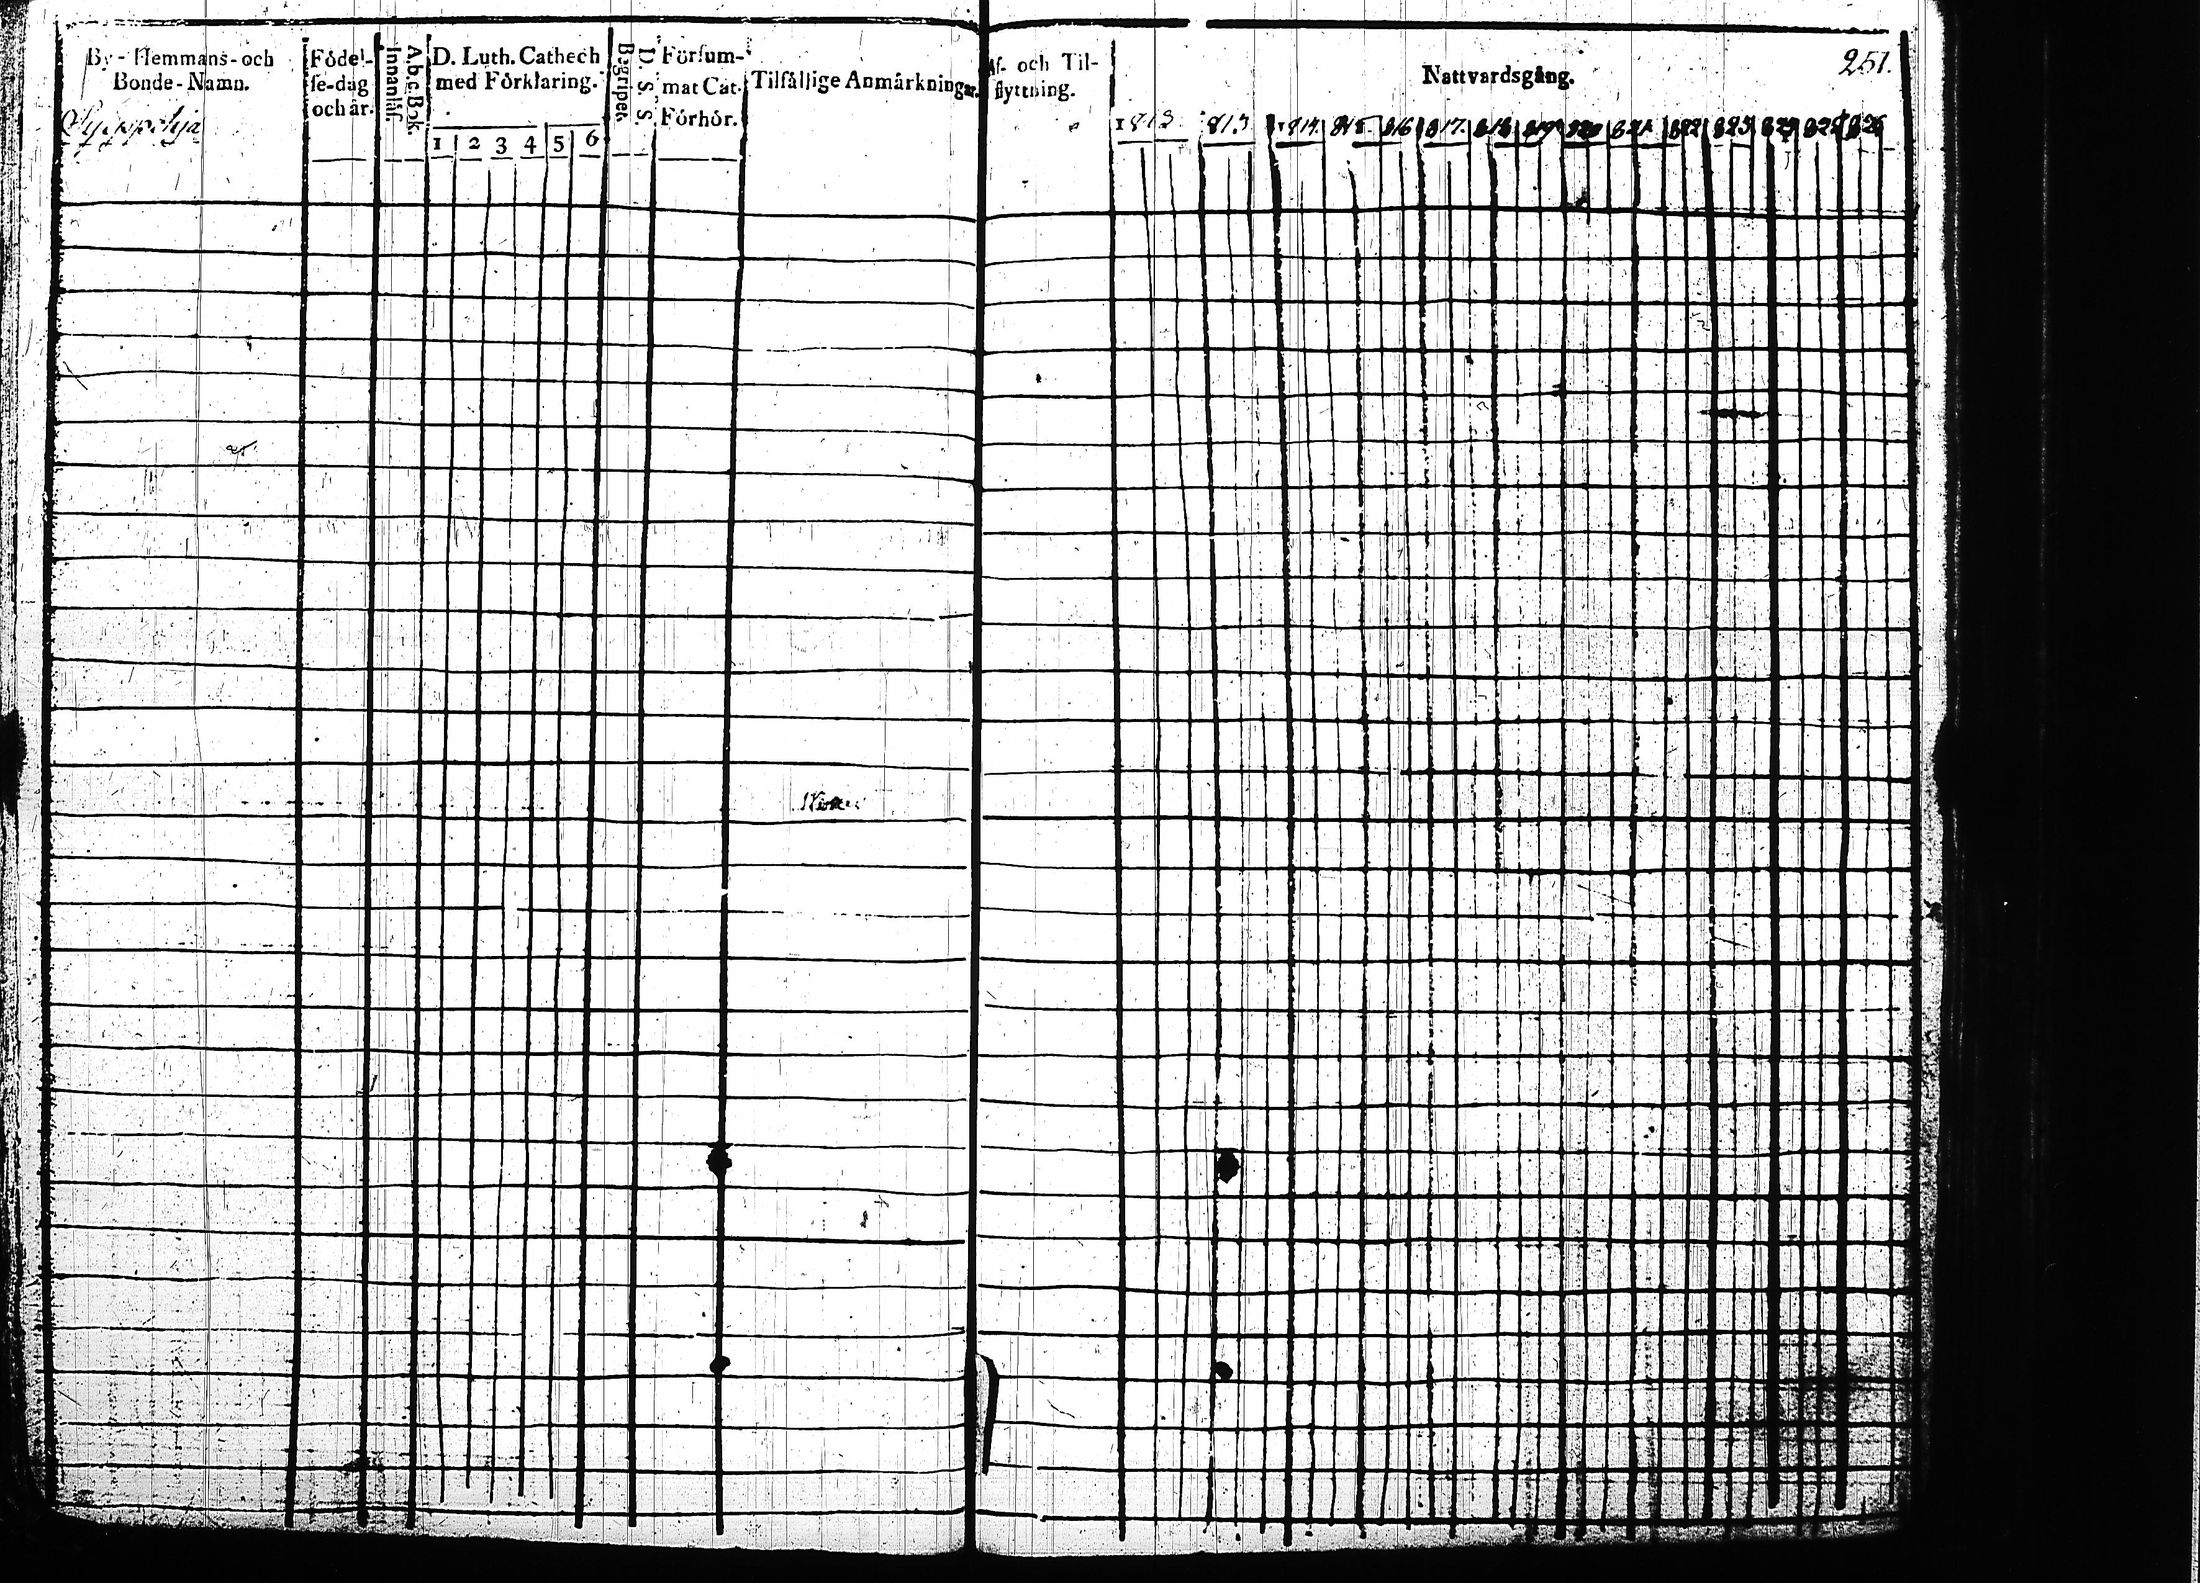 By- Hemmans- och
Bonde-Namn.
Födel-
se-dag
och år.
A.b.c.Bok.
Innanläs.
D. Luth. Cathech
med Förklaring.
1 2 3 4 5 6
Begripet.
D. S. S.
Försum-
mat Cat.
Förhör.
Tilfällige Anmärkningar.
Af- och Til-
flyttning.
Nattvardsgång.
251.
1812. 813 1814. 815. 816 817. 818 819 820 821. 822 823 824 825 826